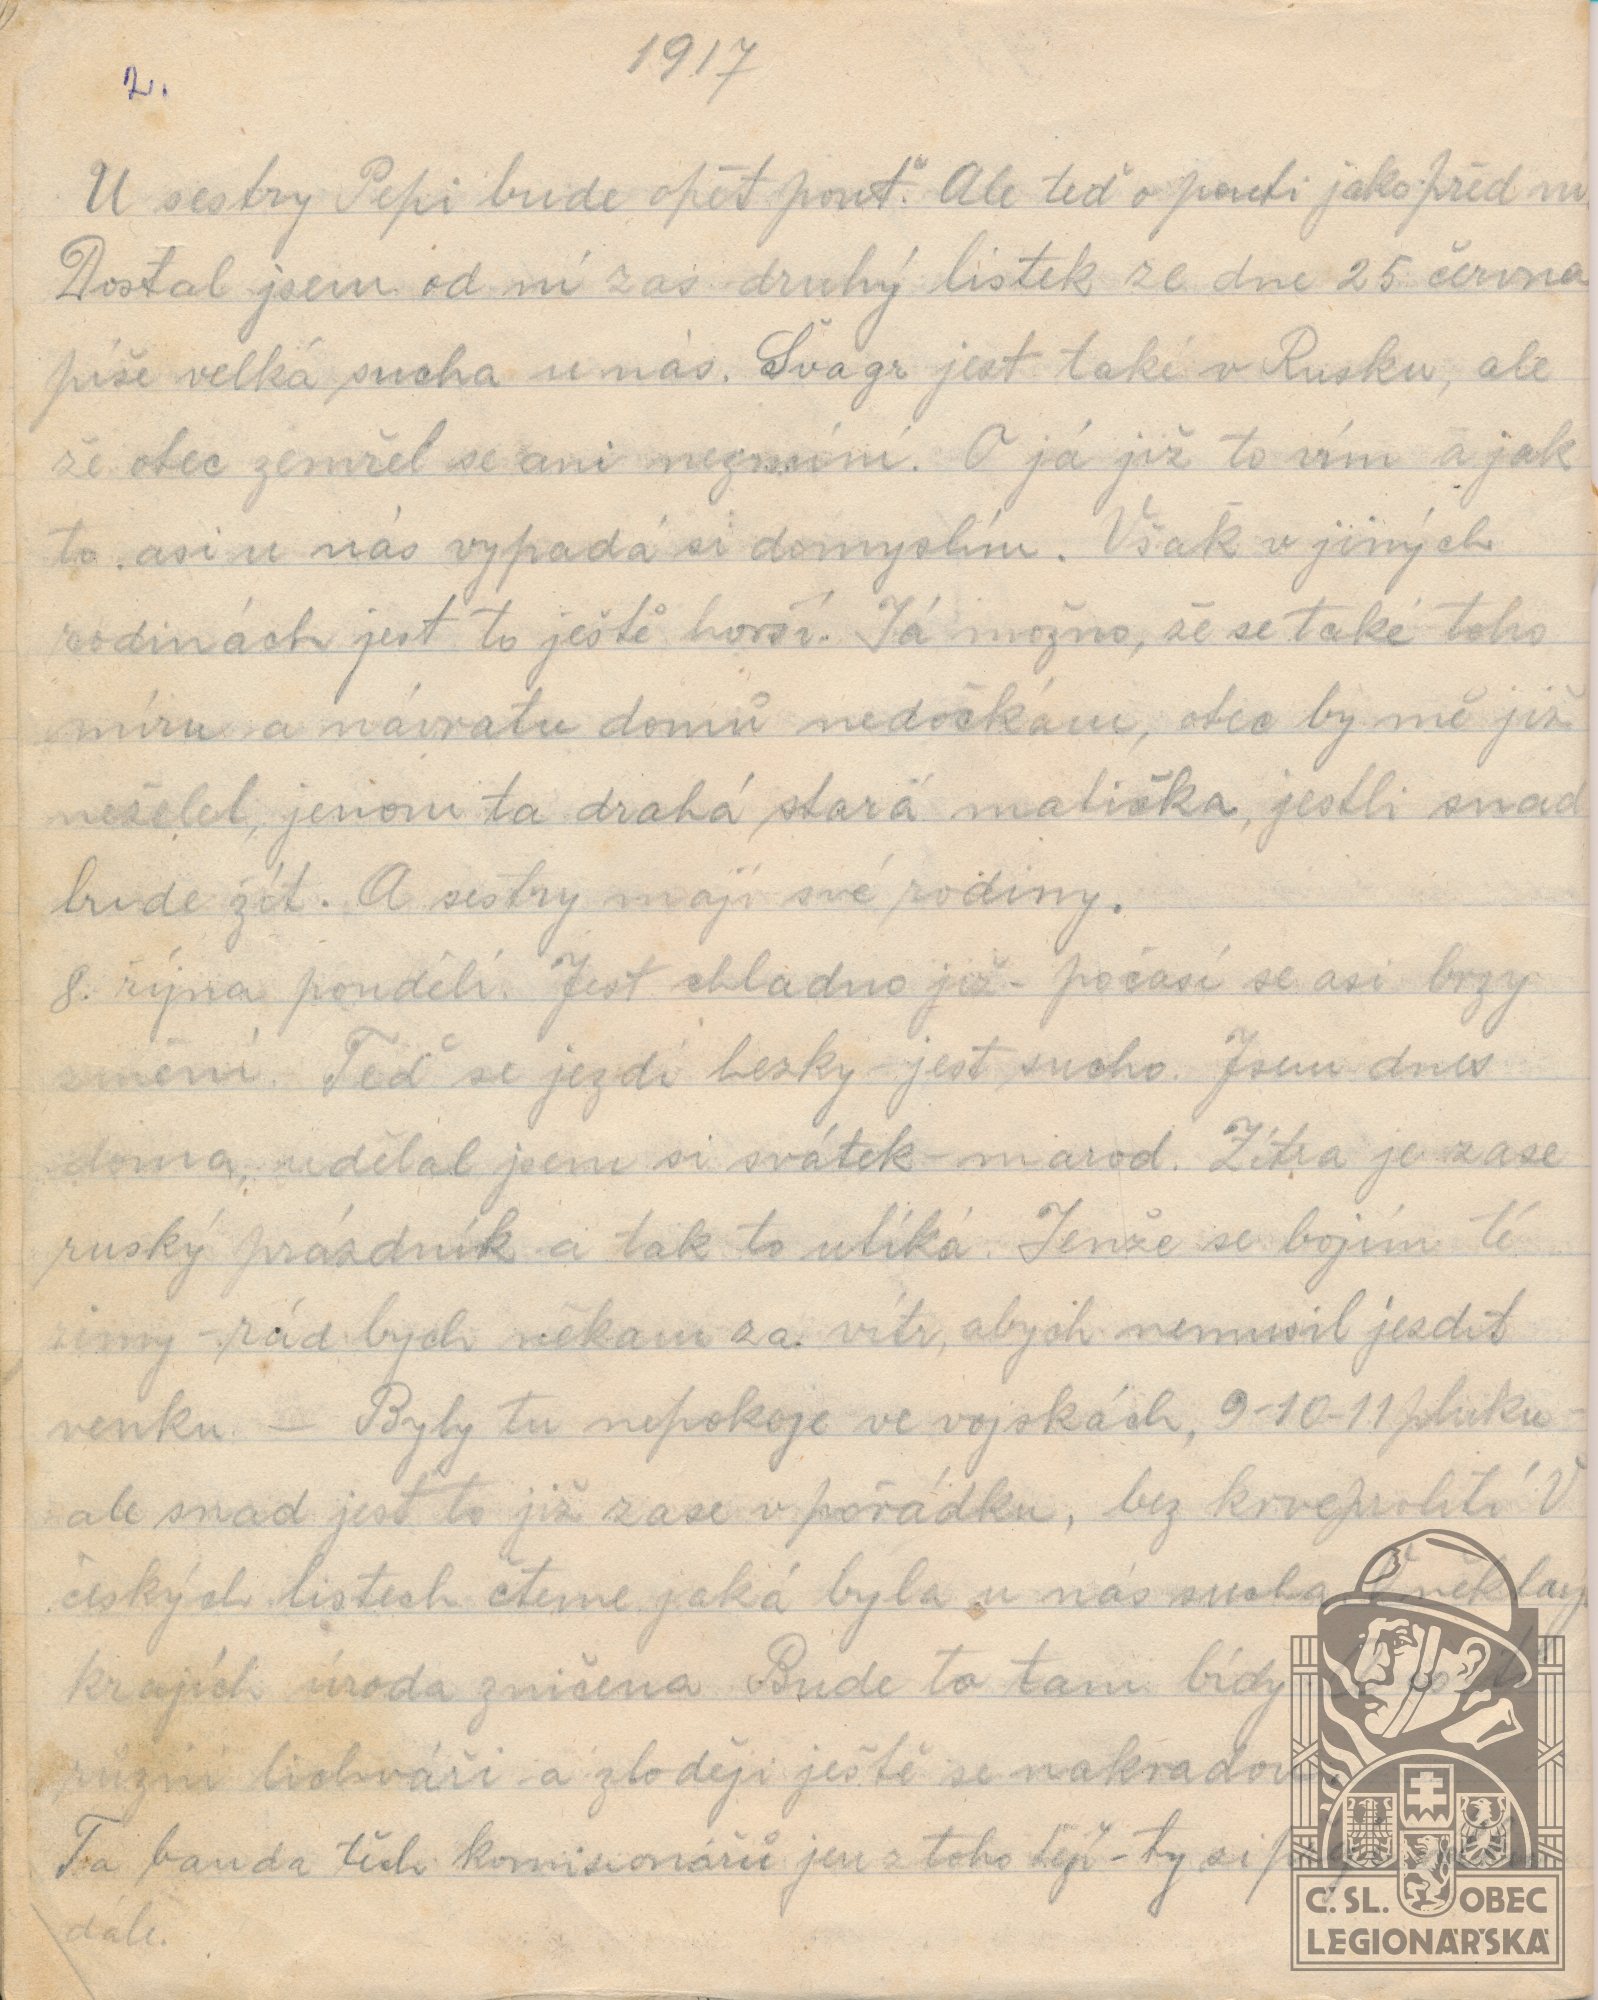 1917
2.
U sestry Pepi bude opět pouť. Ale teď o pouti jako před ní
Dostal jsem od ní zas druhý lístek ze dne 25 června
píše velká sucha u nás. Švagr jest také v Rusku, ale
že otec zemřel se ani nezmíní. O já již to vím a jak
to asi u nás vypadá si domyslím. Však v jiných
rodinách jest to ještě horší. Já možno, že se také toho
míru a návratu domů nedočkám, otec by mě již
neželel, jenom ta drahá stará matička, jestli snad
bude žít. A sestry mají své rodiny.
8. října pondělí. Jest chladno již - počasí se asi brzy
změní. Teď se jezdí hezky - jest sucho. Jsem dnes
doma, udělal jsem si svátek - marod. Zítra je zase
ruský prázdník a tak to utíká. Jenže se bojím té
zimy - rád bych někam za vítr, abych nemusil jezdit
venku. — Byly tu nepokoje ve vojskách, 9-10-11 pluku -
ale snad jest to již zase v pořádku, bez krveprolití V
českých listech čteme jaká byla u nás sucha V
krajích úroda zničena Bude to tam bídy
různí lichváři a zloději ještě se nakradou.
Ta banda těch komisionářů jen z toho týjí - ty si
dále.
Č. SL. OBEC
LEGIONÁŘSKÁ